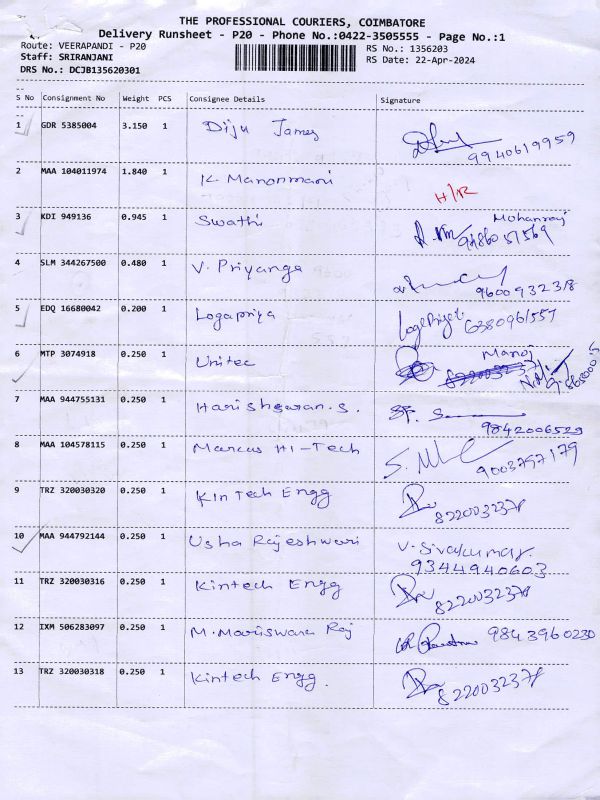 THE PROFESSIONAL COURIERS, COIMBATORE
Delivery Runsheet - P20 - Phone No.:0422-3505555 - Page No.:1
Route: VEERAPANDI - P20 RS No.: 1356203
Staff: SRIRANJANI RS Date: 22-Apr-2024
DRS No.: DCJB135620301
S No Consignment No Weight PCS Consignee Details Signature
1 GDR 5385004 3.150 1 Diju James 9940619959
2 MAA 104011974 1.840 1 K. Manonmani H/R
3 KDI 949136 0.945 1 Swathi Mohanraj
4 SLM 344267500 0.480 1 V. Priyanga 9600932318
5 EDQ 16680042 0.200 1 Logapriya LogaPriya 6380961557
6 MTP 3074918 0.250 1 Unitec Manoj
7 MAA 944755131 0.250 1 Harishwaran.S. 9842006529
8 MAA 104578115 0.250 1 Marcus Hi-Tech 9003797179
9 TRZ 320030320 0.250 1 Kintech Engg 822003237
10 MAA 944792144 0.250 1 Usha Rajeshwari V. Sivakumar.
9344940603
11 TRZ 320030316 0.250 1 Kintech Engg
12 IXM 506283097 0.250 1 M. Mariswara Raj 9843960230
13 TRZ 320030318 0.250 1 Kintech Engg.